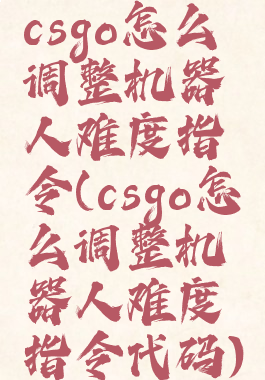 csgo怎么
调整机器
人难度指
令(csgo怎
么调整机
器人难度
指令代码)